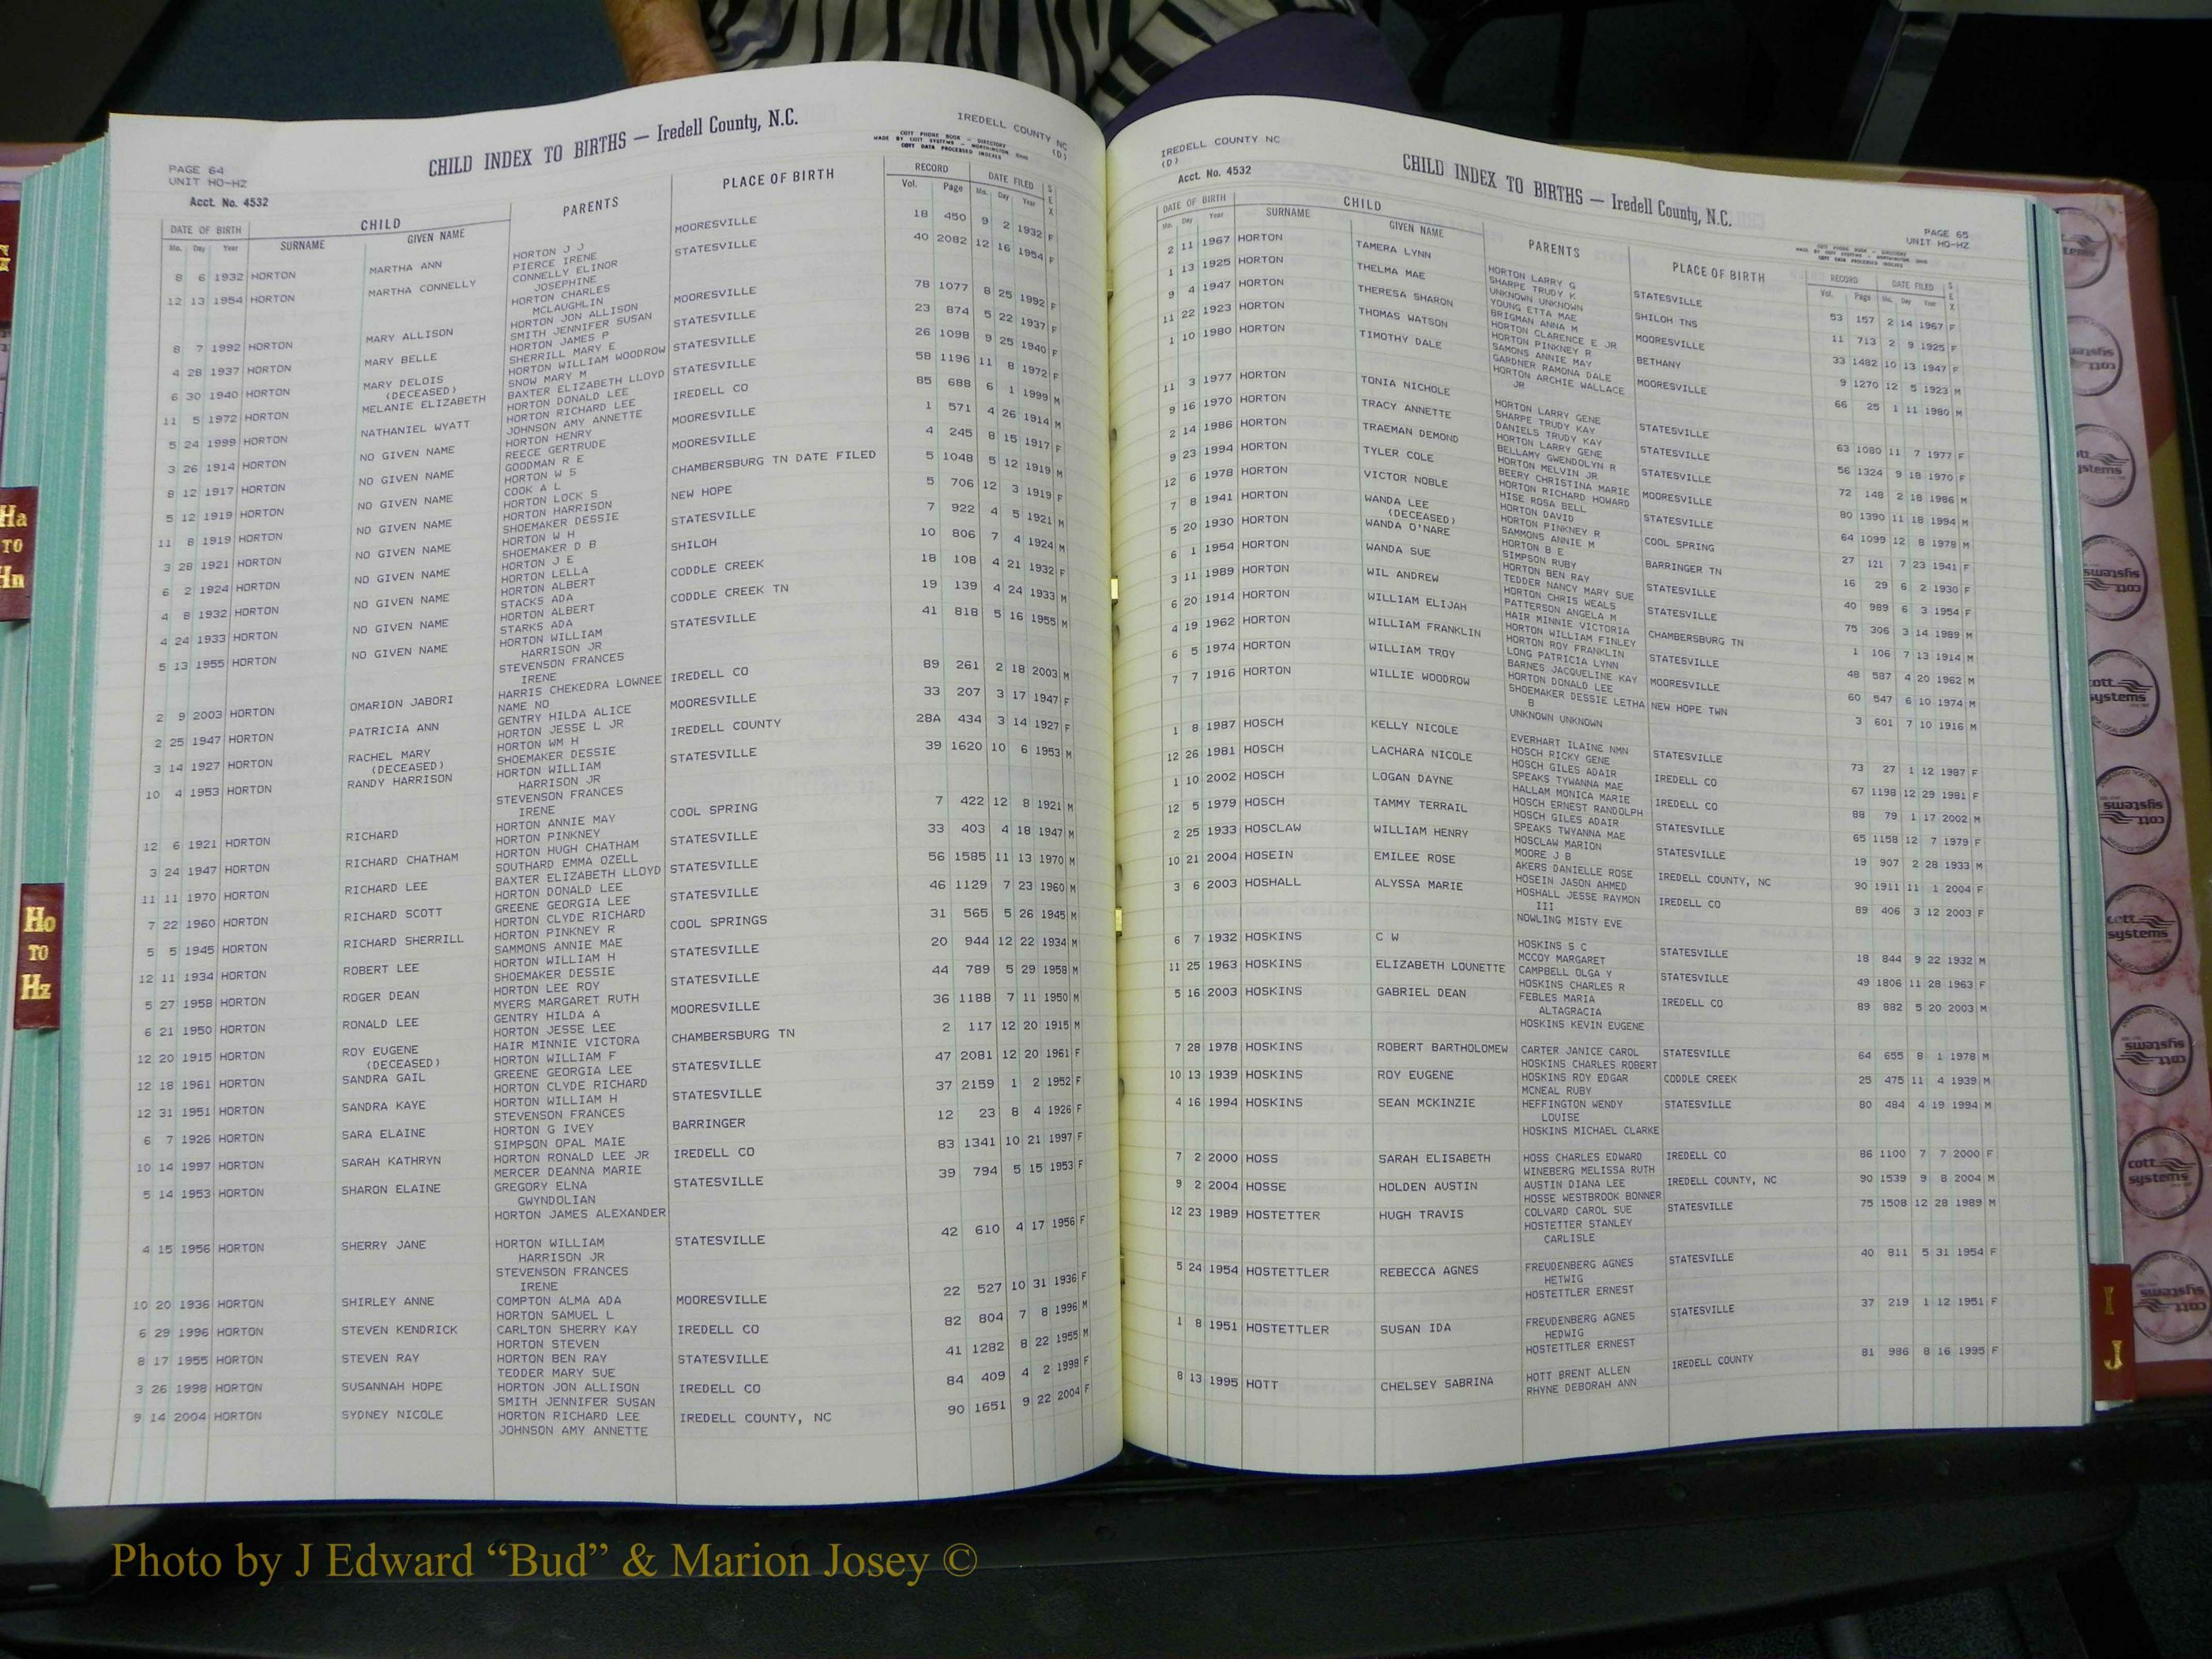 CHILD INDEX TO BIRTHS — Iredell County, N.C.
IREDELL COUNTY NC
(D)
COTT PHONE BOOK - DIRECTORY
MADE BY COTT SYSTEMS - WORTHINGTON OHIO
COTT DATA PROCESSED INDEXES
PAGE 64
UNIT HO-HZ
Acct. No. 4532
DATE OF BIRTH CHILD PARENTS PLACE OF BIRTH RECORD DATE FILED SEX
Mo. Day Year SURNAME GIVEN NAME Vol. Page Mo. Day Year
8 6 1932 HORTON MARTHA ANN HORTON J J MOORESVILLE 18 450 9 2 1932 F
PIERCE IRENE
12 13 1954 HORTON MARTHA CONNELLY CONNELLY ELINOR STATESVILLE 40 2082 12 16 1954 F
JOSEPHINE
HORTON CHARLES
MCLAUGHLIN
8 7 1992 HORTON MARY ALLISON HORTON JON ALLISON MOORESVILLE 78 1077 8 25 1992 F
SMITH JENNIFER SUSAN
4 28 1937 HORTON MARY BELLE HORTON JAMES P STATESVILLE 23 874 5 22 1937 F
SHERRILL MARY E
6 30 1940 HORTON MARY DELOIS HORTON WILLIAM WOODROW STATESVILLE 26 1098 9 25 1940 F
(DECEASED) SNOW MARY M
11 5 1972 HORTON MELANIE ELIZABETH BAXTER ELIZABETH LLOYD STATESVILLE 58 1196 11 8 1972 F
HORTON DONALD LEE
5 24 1999 HORTON NATHANIEL WYATT HORTON RICHARD LEE IREDELL CO 85 688 6 1 1999 M
JOHNSON AMY ANNETTE
3 26 1914 HORTON NO GIVEN NAME HORTON HENRY MOORESVILLE 1 571 4 26 1914 M
REECE GERTRUDE
8 12 1917 HORTON NO GIVEN NAME GOODMAN R E MOORESVILLE 4 245 8 15 1917 F
HORTON W S
5 12 1919 HORTON NO GIVEN NAME COOK A L CHAMBERSBURG TN DATE FILED 5 1048 5 12 1919 M
HORTON LOCK S
11 8 1919 HORTON NO GIVEN NAME HORTON HARRISON NEW HOPE 5 706 12 3 1919 F
SHOEMAKER DESSIE
3 28 1921 HORTON NO GIVEN NAME HORTON W H STATESVILLE 7 922 4 5 1921 M
SHOEMAKER D B
6 2 1924 HORTON NO GIVEN NAME HORTON J E SHILOH 10 806 7 4 1924 M
HORTON LELLA
4 8 1932 HORTON NO GIVEN NAME HORTON ALBERT CODDLE CREEK 18 108 4 21 1932 F
STACKS ADA
4 24 1933 HORTON NO GIVEN NAME HORTON ALBERT CODDLE CREEK TN 19 139 4 24 1933 M
STARKS ADA
5 13 1955 HORTON NO GIVEN NAME HORTON WILLIAM STATESVILLE 41 818 5 16 1955 M
HARRISON JR
STEVENSON FRANCES
IRENE
2 9 2003 HORTON OMARION JABORI HARRIS CHEKEDRA LOWNEE IREDELL CO 89 261 2 18 2003 M
NAME NO
2 25 1947 HORTON PATRICIA ANN GENTRY HILDA ALICE MOORESVILLE 33 207 3 17 1947 F
HORTON JESSE L JR
3 14 1927 HORTON RACHEL MARY HORTON WM H IREDELL COUNTY 28A 434 3 14 1927 F
(DECEASED) SHOEMAKER DESSIE
10 4 1953 HORTON RANDY HARRISON HORTON WILLIAM STATESVILLE 39 1620 10 6 1953 M
HARRISON JR
STEVENSON FRANCES
IRENE
12 6 1921 HORTON RICHARD HORTON ANNIE MAY COOL SPRING 7 422 12 8 1921 M
HORTON PINKNEY
3 24 1947 HORTON RICHARD CHATHAM HORTON HUGH CHATHAM STATESVILLE 33 403 4 18 1947 M
SOUTHARD EMMA OZELL
11 11 1970 HORTON RICHARD LEE BAXTER ELIZABETH LLOYD STATESVILLE 56 1585 11 13 1970 M
HORTON DONALD LEE
7 22 1960 HORTON RICHARD SCOTT GREENE GEORGIA LEE STATESVILLE 46 1129 7 23 1960 M
HORTON CLYDE RICHARD
5 5 1945 HORTON RICHARD SHERRILL HORTON PINKNEY R COOL SPRINGS 31 565 5 26 1945 M
SAMMONS ANNIE MAE
12 11 1934 HORTON ROBERT LEE HORTON WILLIAM H STATESVILLE 20 944 12 22 1934 M
SHOEMAKER DESSIE
5 27 1958 HORTON ROGER DEAN HORTON LEE ROY STATESVILLE 44 789 5 29 1958 M
MYERS MARGARET RUTH
6 21 1950 HORTON RONALD LEE GENTRY HILDA A MOORESVILLE 36 1188 7 11 1950 M
HORTON JESSE LEE
12 20 1915 HORTON ROY EUGENE HAIR MINNIE VICTORA CHAMBERSBURG TN 2 117 12 20 1915 M
(DECEASED) HORTON WILLIAM F
12 18 1961 HORTON SANDRA GAIL GREENE GEORGIA LEE STATESVILLE 47 2081 12 20 1961 F
HORTON CLYDE RICHARD
12 31 1951 HORTON SANDRA KAYE HORTON WILLIAM H STATESVILLE 37 2159 1 2 1952 F
STEVENSON FRANCES
6 7 1926 HORTON SARA ELAINE HORTON G IVEY BARRINGER 12 23 8 4 1926 F
SIMPSON OPAL MAIE
10 14 1997 HORTON SARAH KATHRYN HORTON RONALD LEE JR IREDELL CO 83 1341 10 21 1997 F
MERCER DEANNA MARIE
5 14 1953 HORTON SHARON ELAINE GREGORY ELNA STATESVILLE 39 794 5 15 1953 F
GWYNDOLIAN
HORTON JAMES ALEXANDER
4 15 1956 HORTON SHERRY JANE HORTON WILLIAM STATESVILLE 42 610 4 17 1956 F
HARRISON JR
STEVENSON FRANCES
IRENE
10 20 1936 HORTON SHIRLEY ANNE COMPTON ALMA ADA MOORESVILLE 22 527 10 31 1936 F
HORTON SAMUEL L
6 29 1996 HORTON STEVEN KENDRICK CARLTON SHERRY KAY IREDELL CO 82 804 7 8 1996 M
HORTON STEVEN
8 17 1955 HORTON STEVEN RAY HORTON BEN RAY STATESVILLE 41 1282 8 22 1955 M
TEDDER MARY SUE
3 26 1998 HORTON SUSANNAH HOPE HORTON JON ALLISON IREDELL CO 84 409 4 2 1998 F
SMITH JENNIFER SUSAN
9 14 2004 HORTON SYDNEY NICOLE HORTON RICHARD LEE IREDELL COUNTY, NC 90 1651 9 22 2004 F
JOHNSON AMY ANNETTE
IREDELL COUNTY NC
(D)
Acct. No. 4532
CHILD INDEX TO BIRTHS — Iredell County, N.C.
PAGE 65
UNIT HO-HZ
DATE OF BIRTH CHILD PARENTS PLACE OF BIRTH RECORD DATE FILED SEX
Mo. Day Year SURNAME GIVEN NAME Vol. Page Mo. Day Year
2 11 1967 HORTON TAMERA LYNN HORTON LARRY G STATESVILLE 53 157 2 14 1967 F
SHARPE TRUDY K
1 13 1925 HORTON THELMA MAE UNKNOWN UNKNOWN SHILOH TNS 11 713 2 9 1925 F
YOUNG ETTA MAE
9 4 1947 HORTON THERESA SHARON BRIGMAN ANNA M MOORESVILLE 33 1482 10 13 1947 F
HORTON CLARENCE E JR
11 22 1923 HORTON THOMAS WATSON HORTON PINKNEY R BETHANY 9 1270 12 5 1923 M
SAMONS ANNIE MAY
1 10 1980 HORTON TIMOTHY DALE GARDNER RAMONA DALE MOORESVILLE 66 25 1 11 1980 M
HORTON ARCHIE WALLACE
JR
11 3 1977 HORTON TONIA NICHOLE HORTON LARRY GENE STATESVILLE 63 1080 11 7 1977 F
SHARPE TRUDY KAY
9 16 1970 HORTON TRACY ANNETTE DANIELS TRUDY KAY STATESVILLE 56 1324 9 18 1970 F
HORTON LARRY GENE
2 14 1986 HORTON TRAEMAN DEMOND BELLAMY GWENDOLYN R STATESVILLE 72 148 2 18 1986 M
HORTON MELVIN JR
9 23 1994 HORTON TYLER COLE BEERY CHRISTINA MARIE MOORESVILLE 80 1390 11 18 1994 M
HORTON RICHARD HOWARD
12 6 1978 HORTON VICTOR NOBLE HISE ROSA BELL STATESVILLE 64 1099 12 8 1978 M
HORTON DAVID
7 8 1941 HORTON WANDA LEE HORTON PINKNEY R COOL SPRING 27 121 7 23 1941 F
(DECEASED) SAMMONS ANNIE M
5 20 1930 HORTON WANDA O'NARE HORTON B E BARRINGER TN 16 29 6 2 1930 F
SIMPSON RUBY
6 1 1954 HORTON WANDA SUE HORTON BEN RAY STATESVILLE 40 989 6 3 1954 F
TEDDER NANCY MARY SUE
3 11 1989 HORTON WIL ANDREW HORTON CHRIS WEALS STATESVILLE 75 306 3 14 1989 M
PATTERSON ANGELA M
6 20 1914 HORTON WILLIAM ELIJAH HAIR MINNIE VICTORIA CHAMBERSBURG TN 1 106 7 13 1914 M
HORTON WILLIAM FINLEY
4 19 1962 HORTON WILLIAM FRANKLIN HORTON ROY FRANKLIN STATESVILLE 48 587 4 20 1962 M
LONG PATRICIA LYNN
6 5 1974 HORTON WILLIAM TROY BARNES JACQUELINE KAY MOORESVILLE 60 547 6 10 1974 M
HORTON DONALD LEE
7 7 1916 HORTON WILLIE WOODROW SHOEMAKER DESSIE LETHA NEW HOPE TWN 3 601 7 10 1916 M
B
UNKNOWN UNKNOWN
1 8 1987 HOSCH KELLY NICOLE EVERHART ILAINE NMN STATESVILLE 73 27 1 12 1987 F
HOSCH RICKY GENE
12 26 1981 HOSCH LACHARA NICOLE HOSCH GILES ADAIR IREDELL CO 67 1198 12 29 1981 F
SPEAKS TYWANNA MAE
1 10 2002 HOSCH LOGAN DAYNE HALLAM MONICA MARIE IREDELL CO 88 79 1 17 2002 M
HOSCH ERNEST RANDOLPH
12 5 1979 HOSCH TAMMY TERRAIL HOSCH GILES ADAIR STATESVILLE 65 1158 12 7 1979 F
SPEAKS TWYANNA MAE
2 25 1933 HOSCLAW WILLIAM HENRY HOSCLAW MARION STATESVILLE 19 907 2 28 1933 M
MOORE J B
10 21 2004 HOSEIN EMILEE ROSE AKERS DANIELLE ROSE IREDELL COUNTY, NC 90 1911 11 1 2004 F
HOSEIN JASON AHMED
3 6 2003 HOSHALL ALYSSA MARIE HOSHALL JESSE RAYMON IREDELL CO 89 406 3 12 2003 F
III
NOWLING MISTY EVE
6 7 1932 HOSKINS C W HOSKINS S C STATESVILLE 18 844 9 22 1932 M
MCCOY MARGARET
11 25 1963 HOSKINS ELIZABETH LOUNETTE CAMPBELL OLGA Y STATESVILLE 49 1806 11 28 1963 F
HOSKINS CHARLES R
5 16 2003 HOSKINS GABRIEL DEAN FEBLES MARIA IREDELL CO 89 882 5 20 2003 M
ALTAGRACIA
HOSKINS KEVIN EUGENE
7 28 1978 HOSKINS ROBERT BARTHOLOMEW CARTER JANICE CAROL STATESVILLE 64 655 8 1 1978 M
HOSKINS CHARLES ROBERT
10 13 1939 HOSKINS ROY EUGENE HOSKINS ROY EDGAR CODDLE CREEK 25 475 11 4 1939 M
MCNEAL RUBY
4 16 1994 HOSKINS SEAN MCKINZIE HEFFINGTON WENDY STATESVILLE 80 484 4 19 1994 M
LOUISE
HOSKINS MICHAEL CLARKE
7 2 2000 HOSS SARAH ELISABETH HOSS CHARLES EDWARD IREDELL CO 86 1100 7 7 2000 F
WINEBERG MELISSA RUTH
9 2 2004 HOSSE HOLDEN AUSTIN AUSTIN DIANA LEE IREDELL COUNTY, NC 90 1539 9 8 2004 M
HOSSE WESTBROOK BONNER
12 23 1989 HOSTETTER HUGH TRAVIS COLVARD CAROL SUE STATESVILLE 75 1508 12 28 1989 M
HOSTETTER STANLEY
CARLISLE
5 24 1954 HOSTETTLER REBECCA AGNES FREUDENBERG AGNES STATESVILLE 40 811 5 31 1954 F
HETWIG
HOSTETTLER ERNEST
1 8 1951 HOSTETTLER SUSAN IDA FREUDENBERG AGNES STATESVILLE 37 219 1 12 1951 F
HEDWIG
HOSTETTLER ERNEST
8 13 1995 HOTT CHELSEY SABRINA HOTT BRENT ALLEN IREDELL COUNTY 81 986 8 16 1995 F
RHYNE DEBORAH ANN
Ha
TO
Hn
Ho
TO
Hz
I
J
cott
systems
Photo by J Edward “Bud” & Marion Josey ©